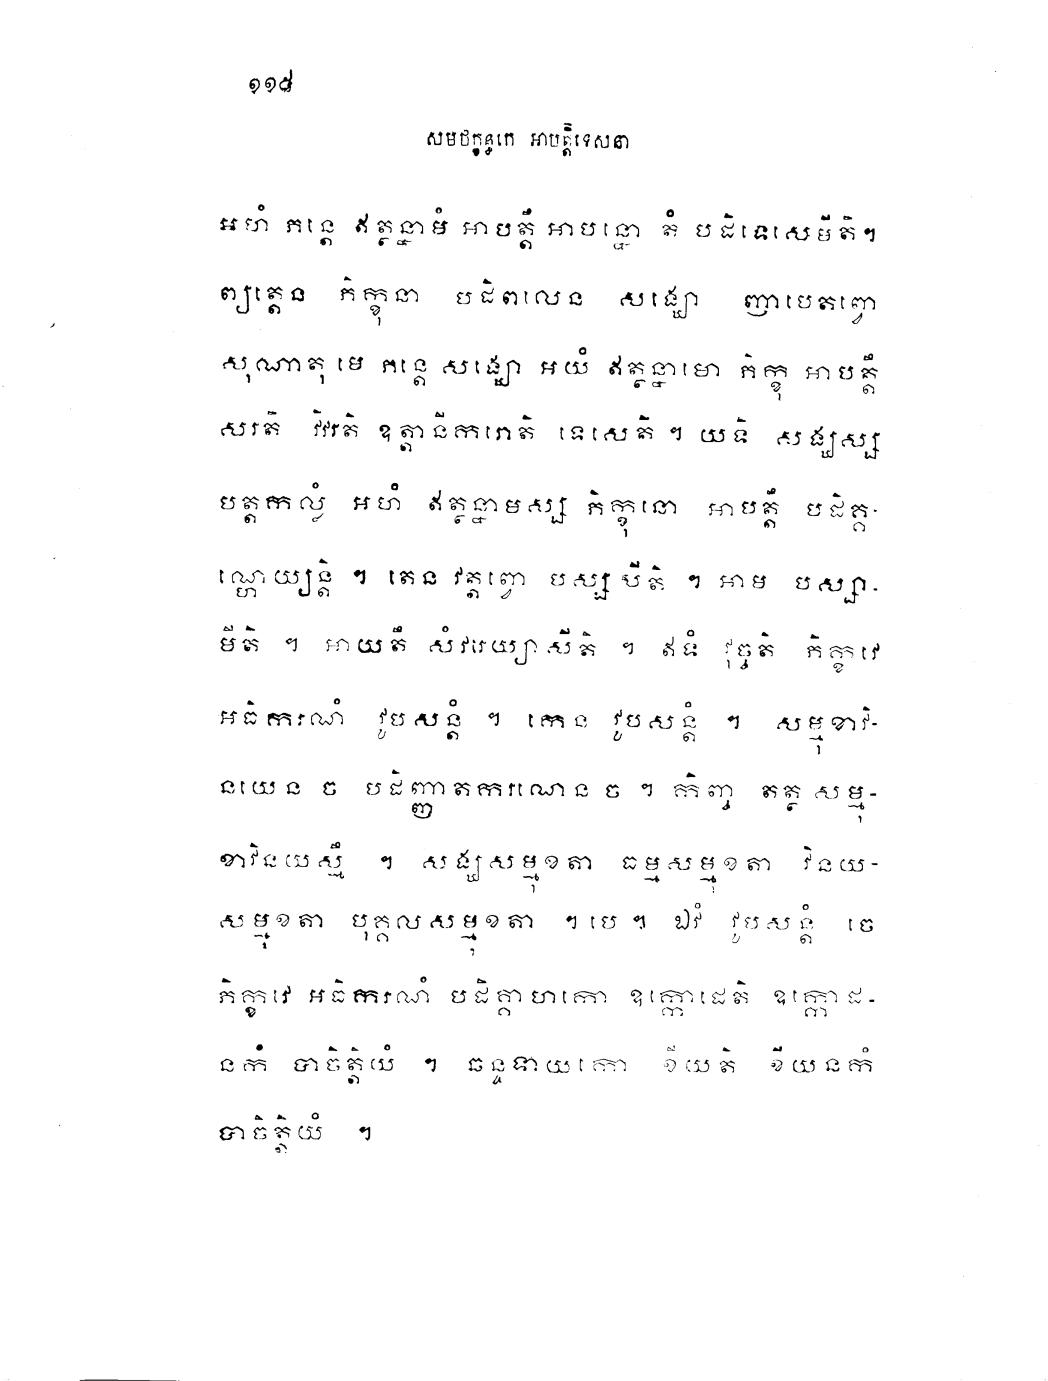 ១១៨
សមថក្ខន្ធកេ អាបត្តិទេសនា
អហំ ភន្តេ ឥត្ថន្នាមំ អាបត្តឹ អាបន្នោ តំ បដិទេសេមីតិ។
ព្យត្តេន ភិក្ខុនា បដិពលេន សង្ឃោ ញាបេតព្វោ
សុណាតុ មេ ភន្តេ សង្ឃោ អយំ ឥត្ថន្នាមោ ភិក្ខុ អាបត្តឹ
សរតិ វិវរតិ ឧត្តានីករោតិ ទេសេតិ។ យទិ សង្ឃស្ស
បត្តកល្លំ អហំ ឥត្ថន្នាមស្ស ភិក្ខុនោ អាបត្តឹ បដិគ្គ-
ណ្ហេយ្យន្តិ ។ តេន វត្តព្វោ បស្សសីតិ ។ អាម បស្សា-
មីតិ ។ អាយតឹ សំវរេយ្យាសីតិ ។ ឥទំ វុច្ចតិ ភិក្ខវេ
អធិករណំ វូបសន្តំ ។ កេន វូបសន្តំ ។ សម្មុខាវិ-
នយេន ច បដិញ្ញាតករណេន ច ។ កិញ្ច តត្ថ សម្មុ-
ខាវិនយស្មឹ ។ សង្ឃសម្មុខតា ធម្មសម្មុខតា វិនយ-
សម្មុខតា បុគ្គលសម្មុខតា ។បេ។ ឯវំ វូបសន្តំ ចេ
ភិក្ខវេ អធិករណំ បដិគ្គាហកោ ឧក្កោដេតិ ឧក្កោដ-
នកំ បាចិត្តិយំ ។ ឆន្ទទាយកោ ខីយតិ ខីយនកំ
បាចិត្តិយំ ។